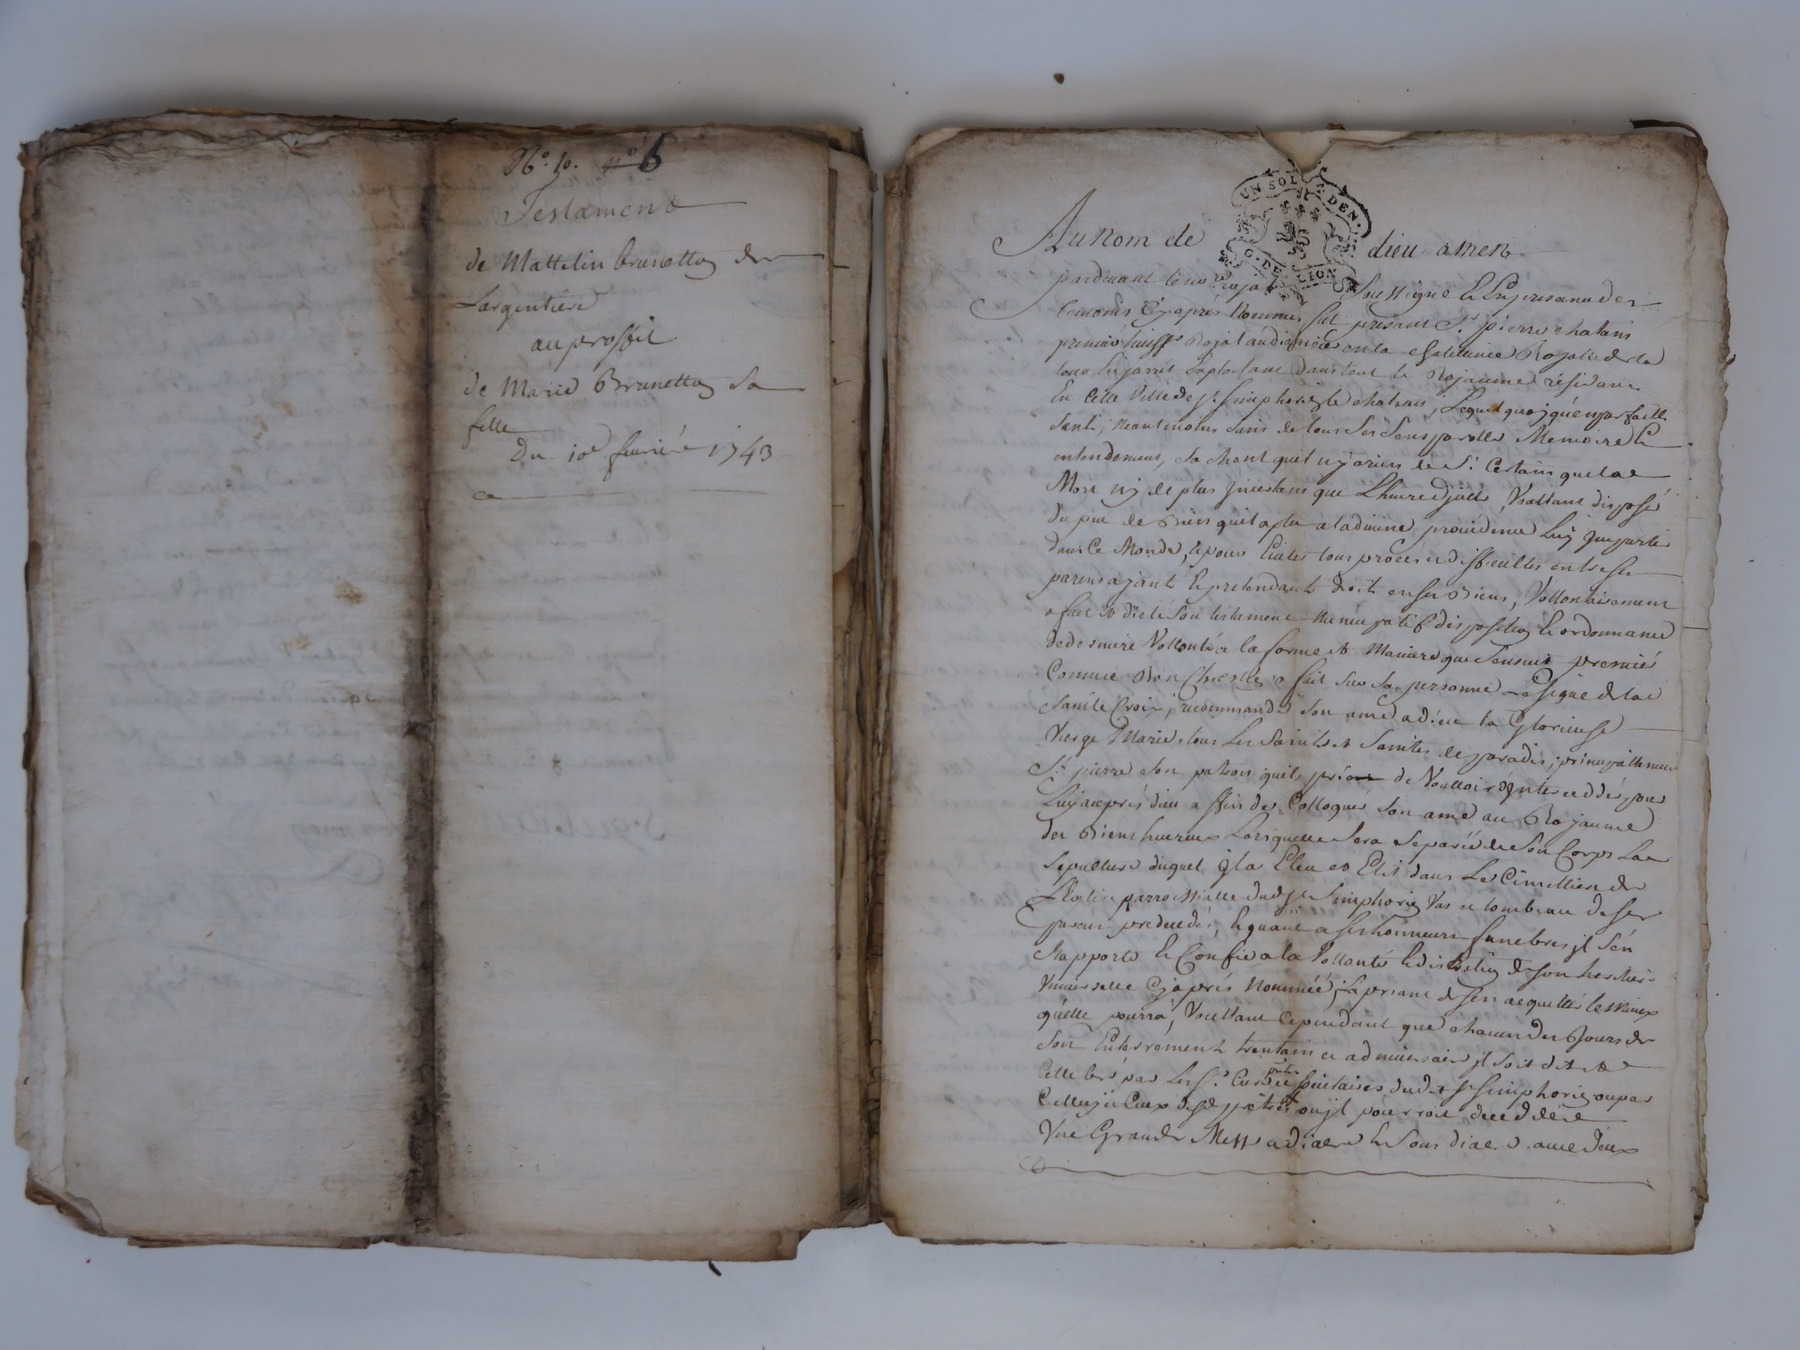 N°. 10. 4° 6
Testament
de Mattelin brunetton de
Largentiere
au proffit
de Marie Brunetton Sa
fille
Du 10e fevrié 1743
UN SOL DEN.
G. DE LION
Au Nom de dieu amen
pardevant le no.re Royal Soussigné & En presance des
temoins Cy apres Nommés fut present Sr. pierre chatain
premier huiss. Royal audiencier en la chatelenie Royalle de la
résidant
En cette Ville de St. Simphorie le chatains, Lequel quoy qu'en parfaitte
Santé, neantmoins Sain de tous Ses Sens parolle Memoire &
entendement, Sachant quil ny a rien de Si Certain que la
Mort ny de plus jncertain que L'heure djcelle, Voullant disposé
du peu de Bien quil a plu a la divine providence Luy jmpartir
dans Ce Monde, & pour Eviter tous proces et difficultes entre Ses
parens ayant & pretendant droit en Ses Biens, Vollontairement
a fait & dicté Son testement Nuncupatif disposition & ordonnance
de derniere Vollonté a la forme & Maniere que Sensuit premié
Comme Bon Chrestien a fait Sur Sa personne Le Signe de la
Sainte Croix, recommandé Son ame a dieu la Glorieuse
Vierge Marie, tous Les Saints & Saintes de paradis, principallement
St. pierre Son patron quil prie de Voulloir jnterceddé pour
Luy aupres dieu affin de Colloquer Son ame au Royaume
des Bienheureux Lorsquelle Sera Separée de Son Corps La
Sepulture duquel jl a Eleu & Elit dans Le Cimettiere de
L'Eglise parroissialle dudt St Simphorie Vas et tombeau de Ses
parens predecedés, & quant a Ses honneurs funebres jl S'en
Rapporte & Confie a la Vollonté & discretion de Son heritiere
Universelle Cy apres Nommée, La priant de Sen acquitter le mieux
quelle pourra, Voullant Cependant que chacun des Jours de
Son Enterrement trentain et adniversaire jl Soit dit &
Cellebré par Les Srs Curé & Societaires dudt St Simphorie ou par
Celluy ou Ceux des ou jl pourroit decedder
Une Grande Messe a diacre & Sous diacre avec deux